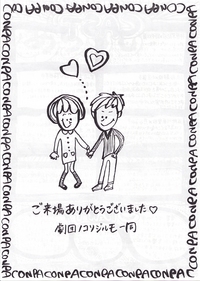 CONPACONPACONPACONPACONPA
ご来場ありがとうございました♡
劇団ノコソジルモ一同
CONPACONPACONPACONPACONPA